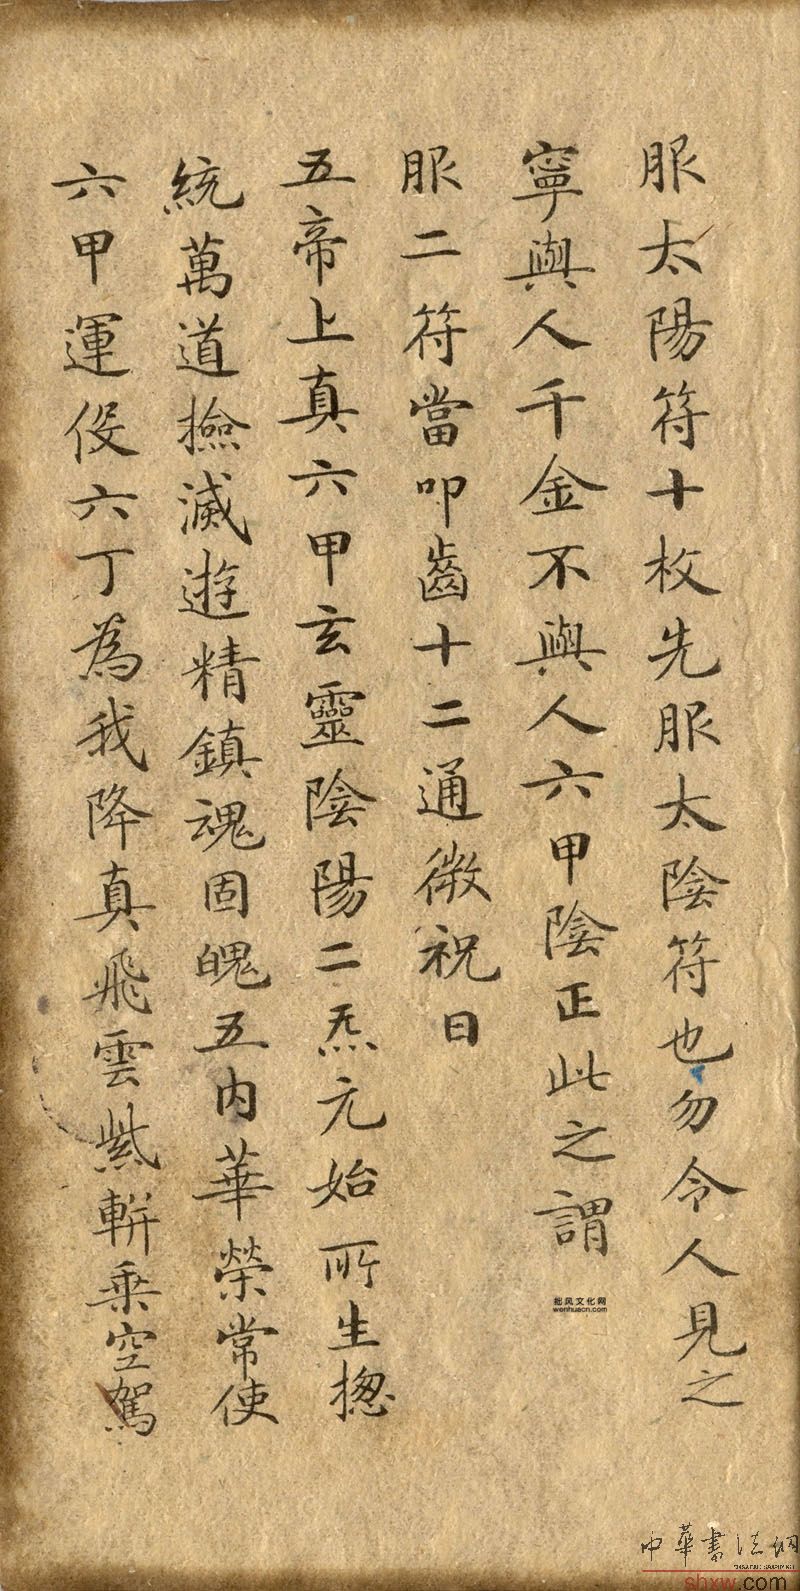 服太陽符十枚先服太陰符也勿令人見之
寧與人千金不與人六甲陰正此之謂
服二符當叩齒十二通微祝曰
五帝上真六甲玄靈陰陽二炁元始所生揔
統萬道撿滅遊精鎮魂固魄五内華榮常使
六甲運役六丁為我降真飛雲紫軿乗空駕
拙风文化网
wenhuacn.com
中華書法網
shxw.com